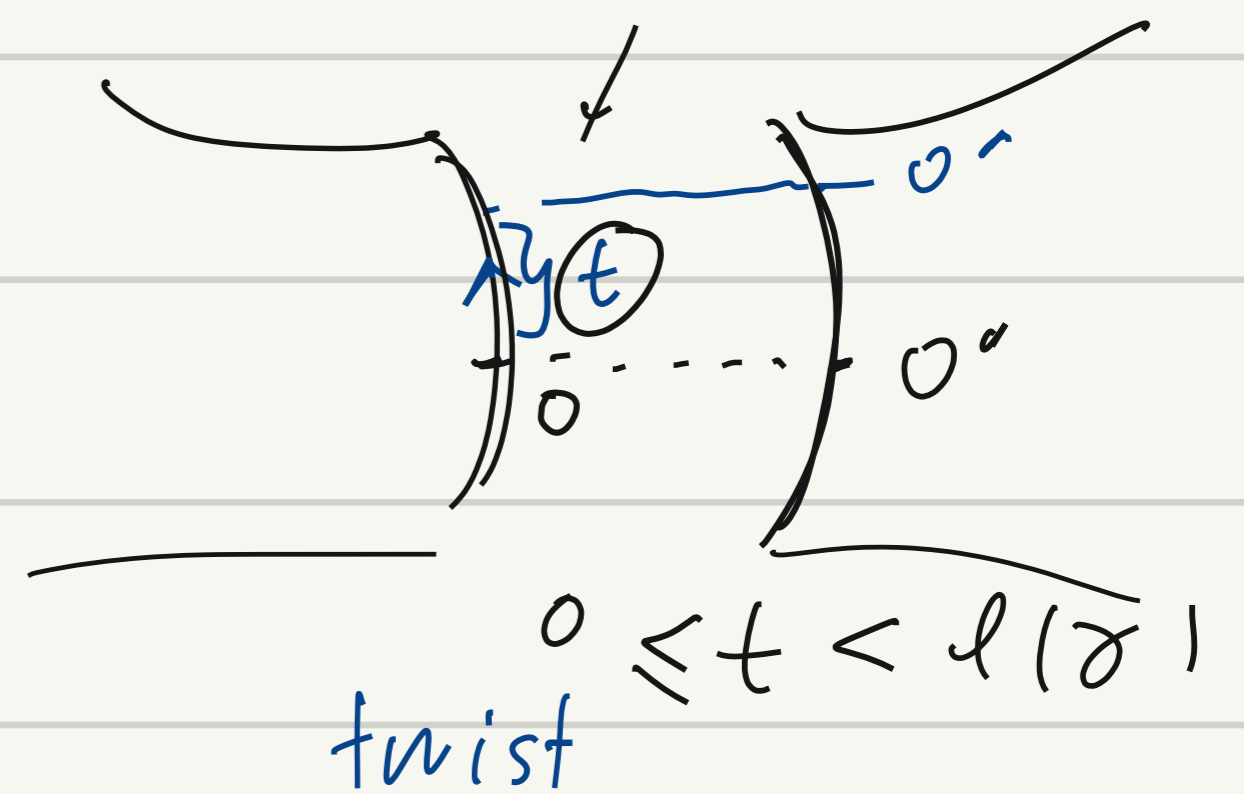 0
t
0
0"
0 ≤ t < l(γ)
twist